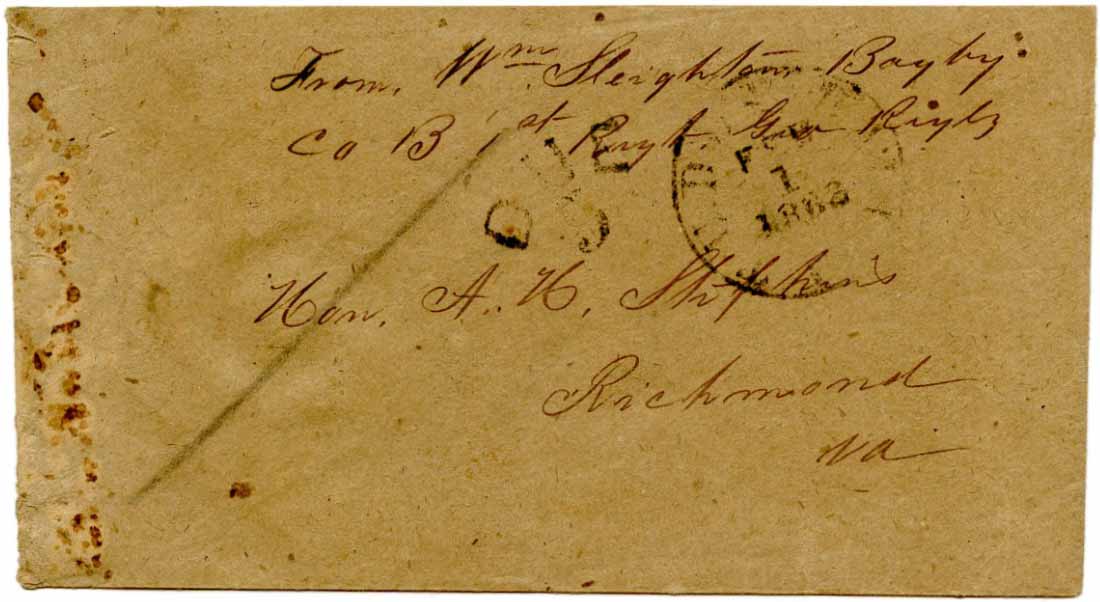 From, Wm Sleighton Bagby
Co B 1st Regt. Geo Rigls
DUE
FEB
1
1863
Hon. A. H. Stephens
Richmond
Va